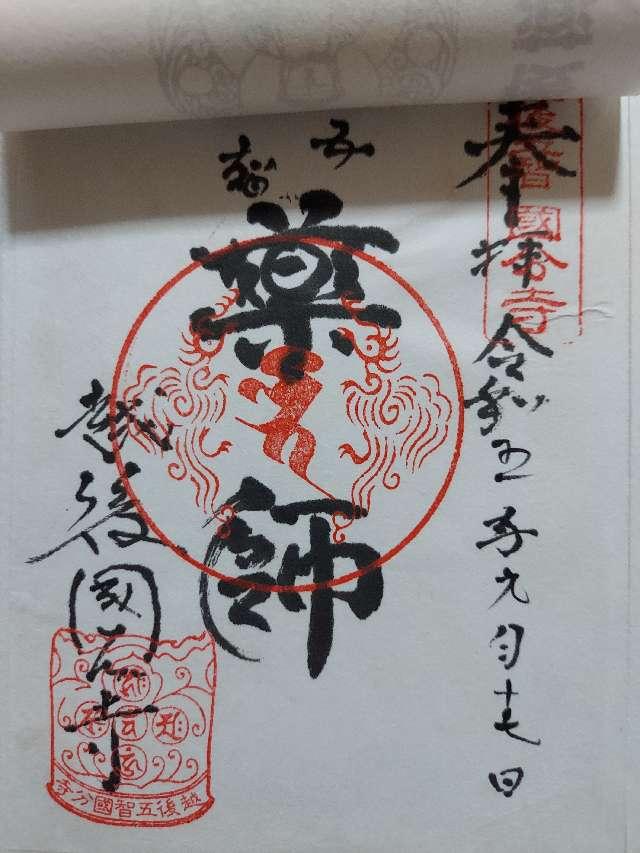 奉拝 令和五年九月十七日
五智國分寺
五智
薬師
越後國分寺
越後五智國分寺